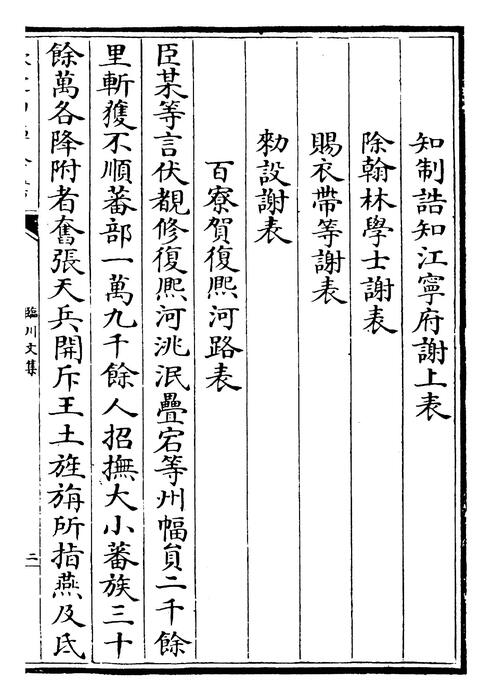 知制誥知江寧府謝上表
除翰林學士謝表
賜衣帶等謝表
勑設謝表
百寮賀復熈河路表
臣某等言伏覩修復熈河洮泯疊宕等州幅員二千餘
里斬獲不順蕃部一萬九千餘人招撫大小蕃族三十
餘萬各降附者奮張天兵開斥王土旌旃所指燕及氐
臨川文集
二